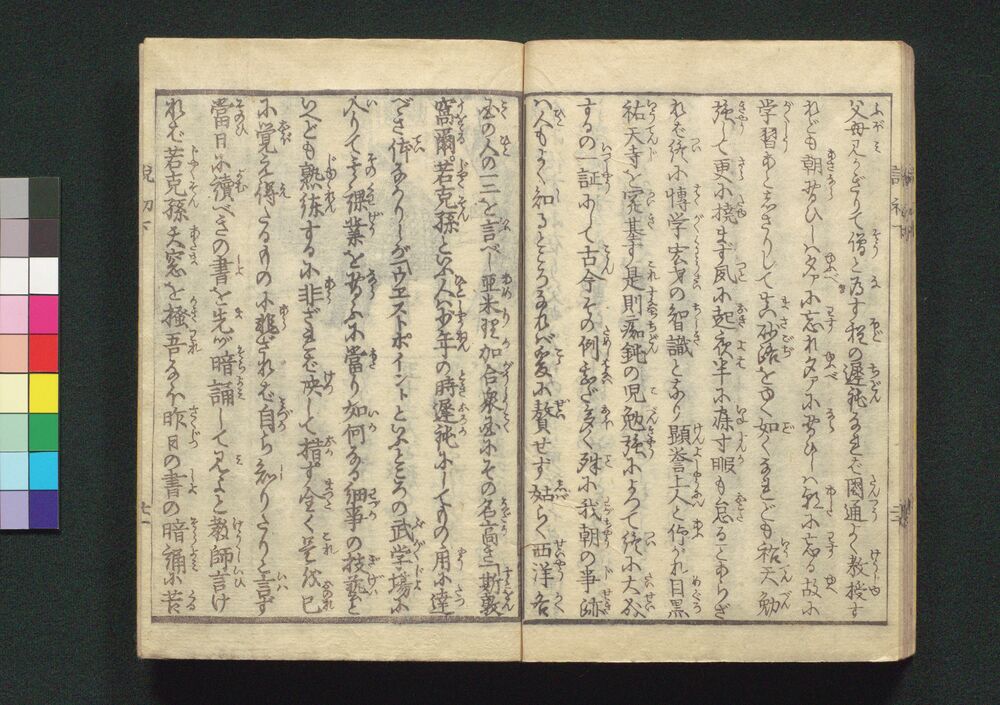 父母ミかぎりて僧と為す程の遅鈍なれど圓通が教授す
れども朝習ひしハ夕に忘れ夕に習ひしハ朝に忘る故に
学習あとしさりして真砂路をゆく如くなれども祐天勉
強して更に撓まず夙に起夜半に寐寸暇も怠ることあらざ
れば終に博学宏才の智識となり顕誉上人と仰がれ目黒
祐天寺を開基す是則痴鈍の児勉強によつて終に大器
するの一証にして古今その例すくなからず殊に我朝の事跡
ハ人もよく知るところなれバ爰に贅せず姑らく西洋各
国の人の一二を言べし亜米理加合衆国にその名高き「斯敦
窩爾。若克孫といふ人ハ少年の時遅鈍にしてものゝ用に達
べき体なかりしが「ウエストポイントといふところの武学場に
入りてその課業を習ふに當り如何なる細事の技藝と
いへども熟練するに非ざれバ决して措ず全く是を己
に覚え得たるものに非ざれば自ら知りたりと言ず
當日に讀べきの書を先ツ暗誦して見よと教師言け
れば若克孫天窓を掻吾なほ昨日の書の暗誦に苦